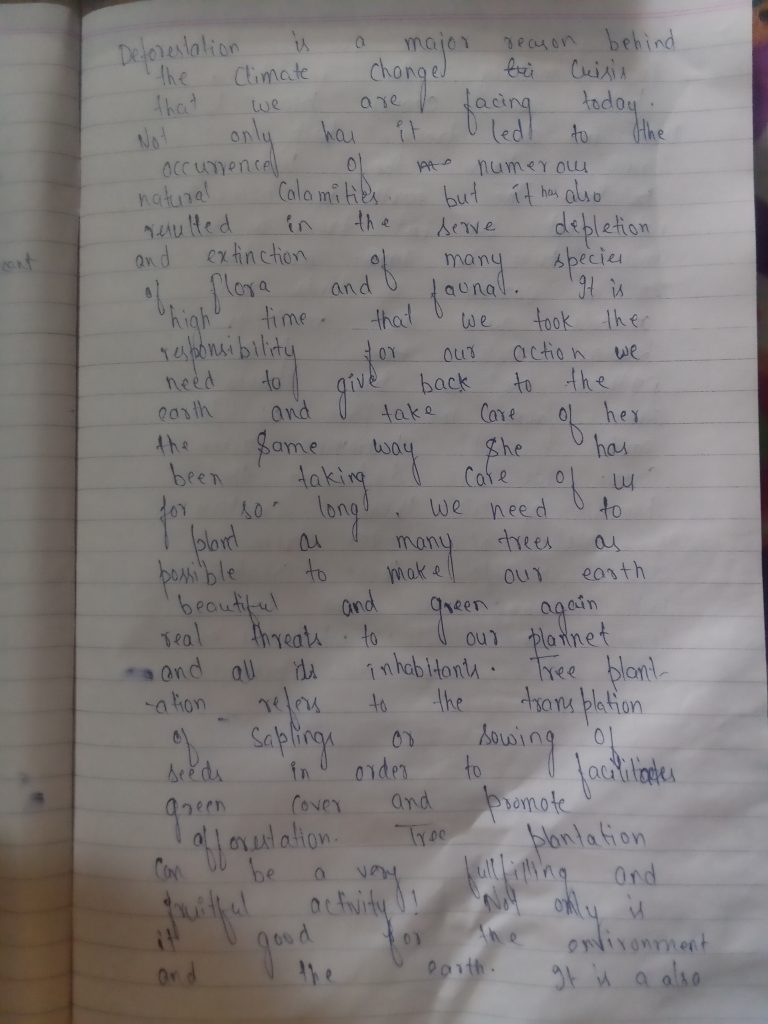 Deforestation is a major reason behind
the Climate change Crisis
that we are facing today.
Not only has it led to the
occurrence of numerous
natural Calamities. but it has also
resulted in the serve depletion
and extinction of many species
of flora and fauna. It is
high time. that we took the
responsibility for our action we
need to give back to the
earth and take care of her
the same way she has
been taking care of us
for so long. We need to
plant as many trees as
possible to make our earth
beautiful and green again
real threats to our plannet
and all its inhabitants. Tree plant-
-ation refers to the transplation
of saplings or sowing of
seeds in order to facilitates
green cover and promote
afforestation. Tree plantation
can be a very fullfilling and
fruitful activity! Not only is
it good for the environment
and the earth. It is a also